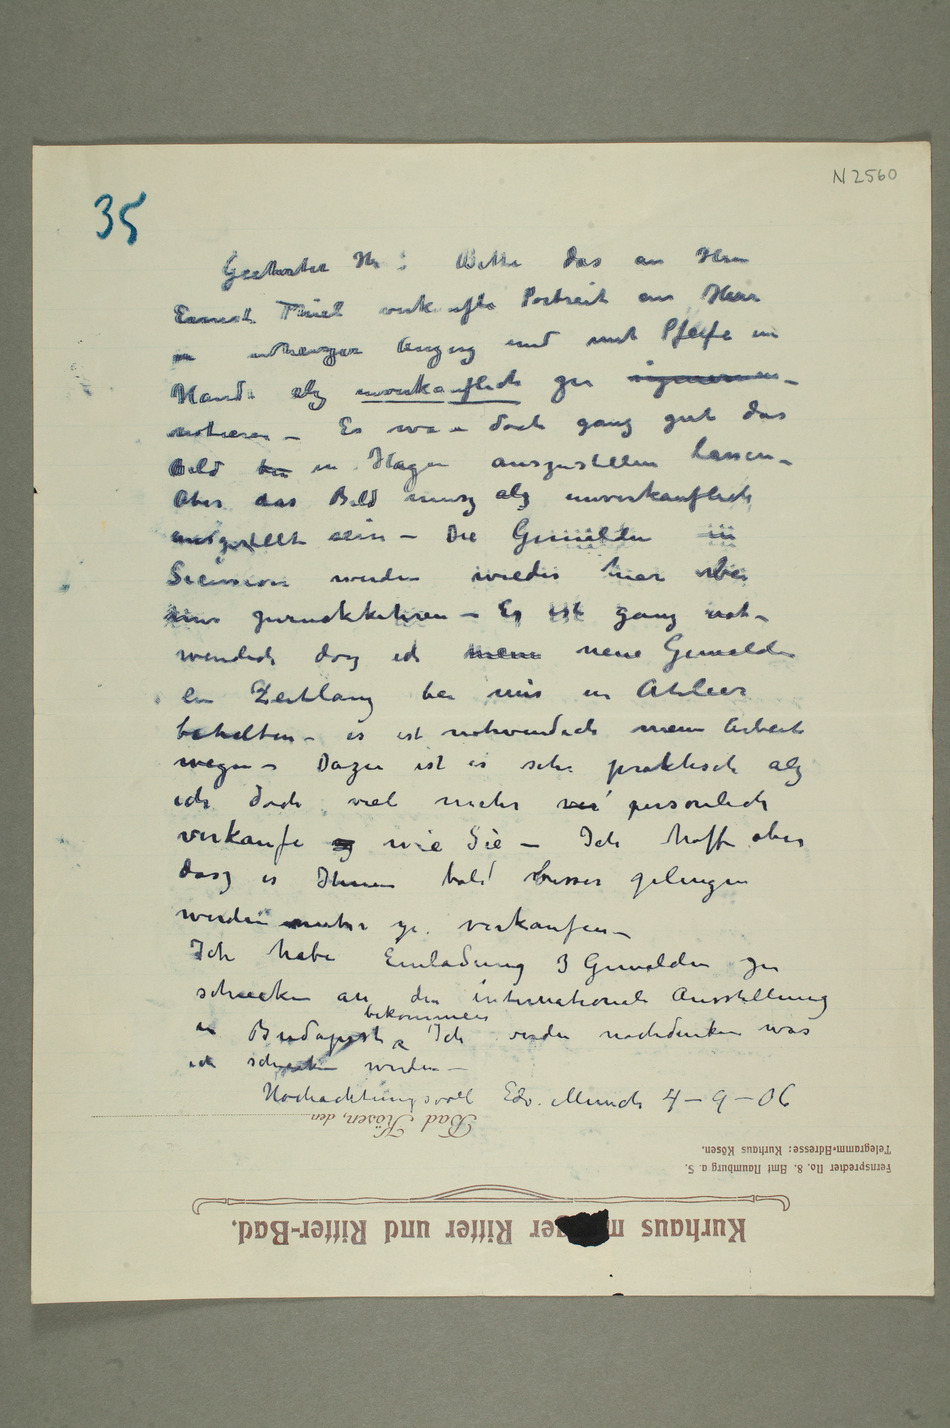 N 2560
35
Geehrter Hr! Bitte das an Herrn
Ernest Thiel verkaufte Portrait eur Herr
in Anzug und mit Pfeife in
Hand als unverkauflich zu
notieren – Es war doch ganz gut das
Bild in Hagen auszustellen lassen –
Aber das Bild musz alz unverkauflich
ausgestellt sein – Die Gemälden in
Secession werden wieder hier bei
mir zuruckkehren – Es ist ganz not-
wendich dasz ich meine neue Gemalden
ein Zeitlang bei mir in Atelier
behalten – es ist notwendich mein Arbeit
wegen – Dazu ist es sehr praktisch alz
ich doch viel mehr personlich
verkaufe wie Sie – Ich hoffe aber
dasz es Ihnen bald besser gelingen
werden mehr zu verkaufen –
Ich habe Einladung 3 Gemalden zu
schicken an den internationale Ausstellung
in Budapest bekommen Ich werden nachdenken was
ich schicken werden –
Hochachtungsvoll Edv. Munch 4 – 9 – 06
Bad Kösen, den
Telegramm-Adresse: Kurhaus Kösen.
Fernsprecher No. 8. Amt Naumburg a. S.
Kurhaus Ritter und Ritter-Bad.